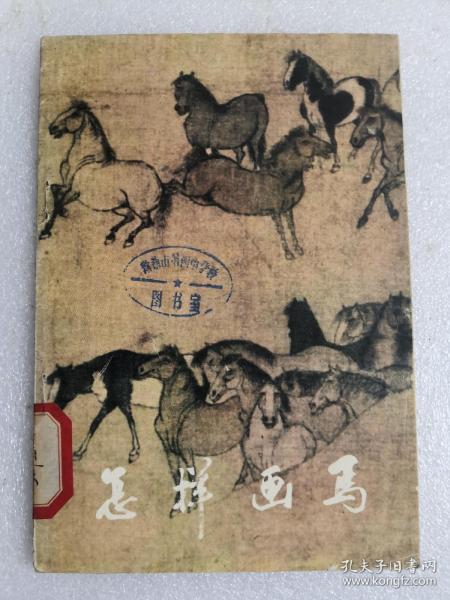 图书室
怎样画马
孔夫子旧书网
www.kongfz.com